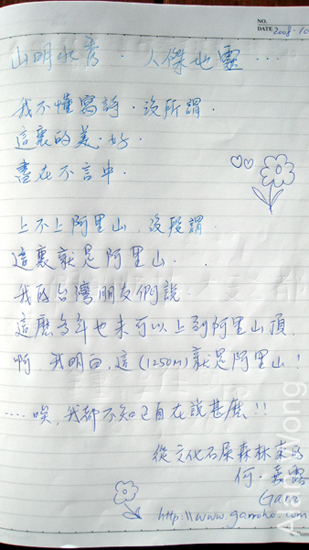 NO.
DATE 2008.10
山明水秀．人傑地靈…
我不懂寫詩．沒所謂．
這裏的美．好．
盡在不言中．
上不上阿里山．沒所謂．
這裏就是阿里山．
我的台灣朋友們說．
這麼多年也未可以上到阿里山頂．
啊 我明白，這(1250m)就是阿里山！
……唉，我都不知自己在說甚麼!!
從文化石屎森林來的
何．嘉露
Garro
http://www.garroho.com